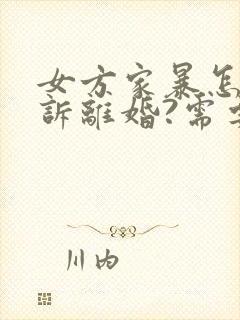 女方家暴怎
訴離婚?需
川内